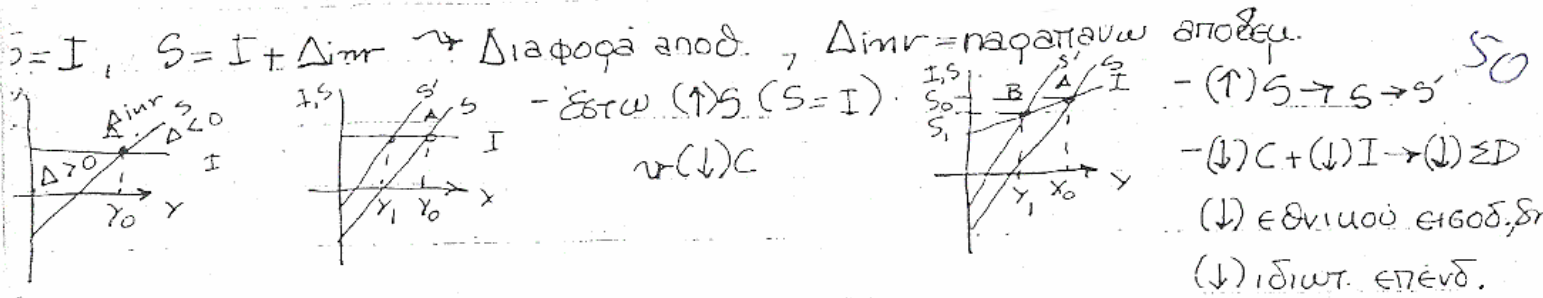 S=I, S=I+Δinv ⤳ Διαφορά αποθ., Δinv=παραπάνω αποθεμ.
50
Δinv S
Δ<0
Δ>0 I
Y₀ Y
I,S S' S
A
I
Y₁ Y₀ Y
-έστω (↑)S (S=I).
(↓)C
I,S S' S
B A I
S₀
S₁
Y₁ Y₀ Y
-(↑)S → S → S'
-(↓)C+(↓)I → (↓)ΣD
(↓) εθνικού εισοδ.,δη
(↓) ιδιωτ. επένδ.